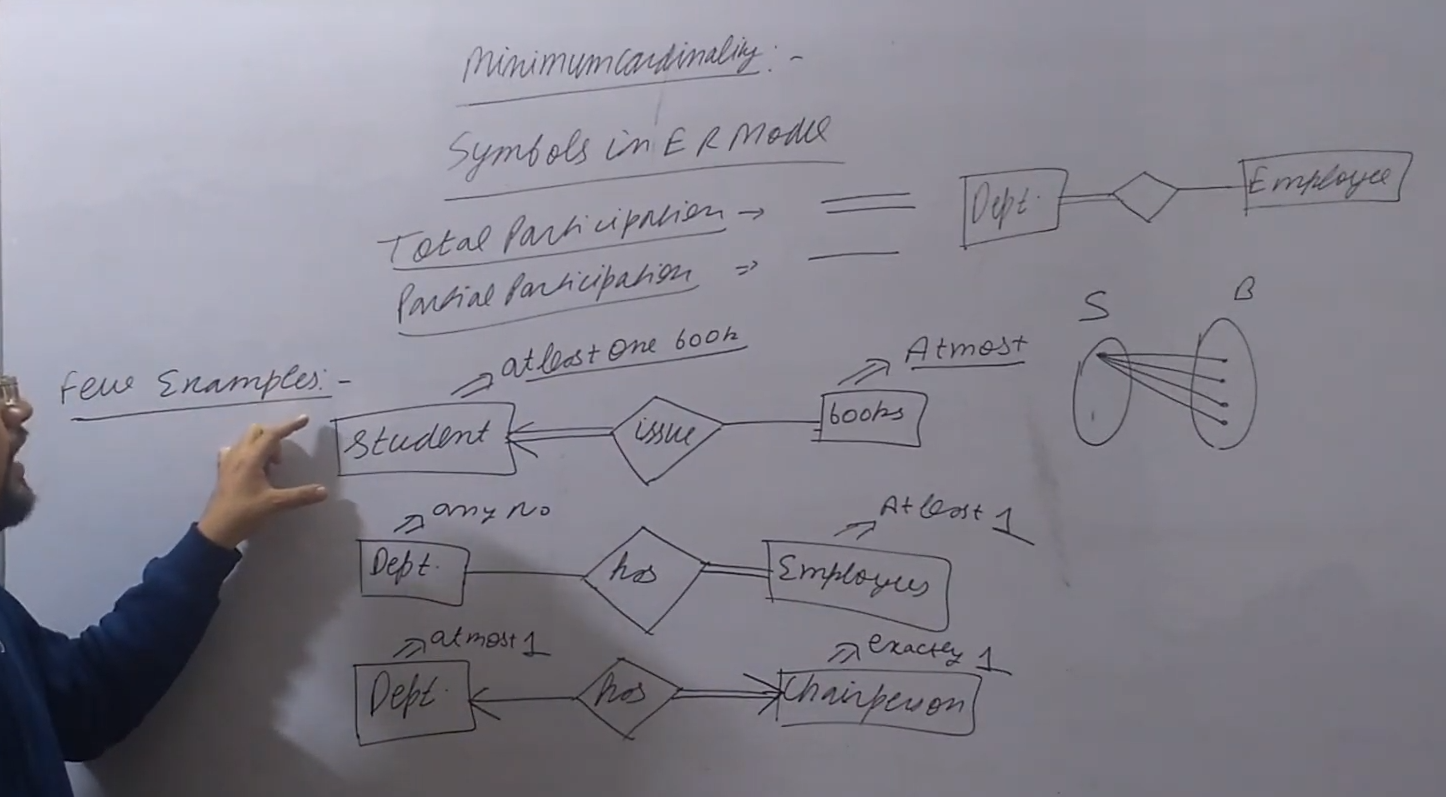 Minimumcardinality:-
Symbols in ER Model
Total Participation →
Dept.
Employee
Partial Participation ⇒
S
B
Few Examples:-
atleast one book
Atmost
Student
issue
books
any no
Atleast 1
Dept.
has
Employees
atmost 1
exactly 1
Dept.
has
Chairperson